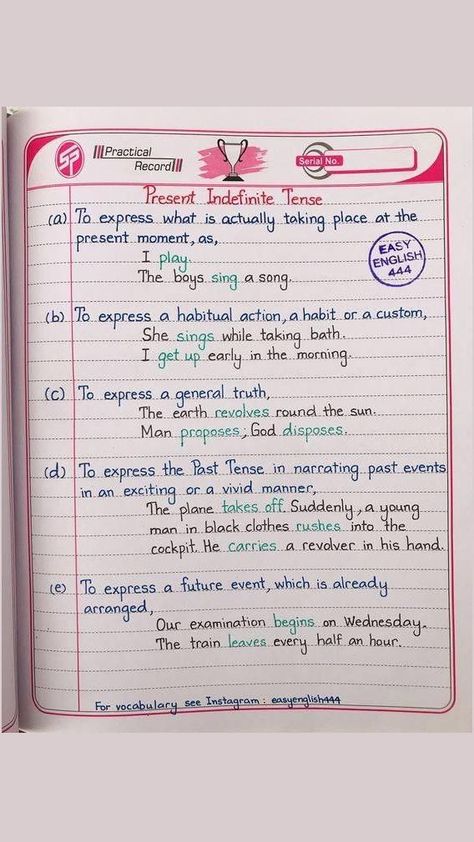 SP
Practical
Record
Serial No.
Present Indefinite Tense
(a) To express what is actually taking place at the
present moment, as,
I play.
The boys sing a song.
EASY
ENGLISH
444
(b) To express a habitual action, a habit or a custom,
She sings while taking bath.
I get up early in the morning.
(c) To express a general truth,
The earth revolves round the sun.
Man proposes; God disposes.
(d) To express the Past Tense in narrating past events
in an exciting or a vivid manner,
The plane takes off. Suddenly, a young
man in black clothes rushes into the
cockpit. He carries a revolver in his hand.
(e) To express a future event, which is already
arranged,
Our examination begins on Wednesday.
The train leaves every half an hour.
For vocabulary see Instagram : easyenglish444